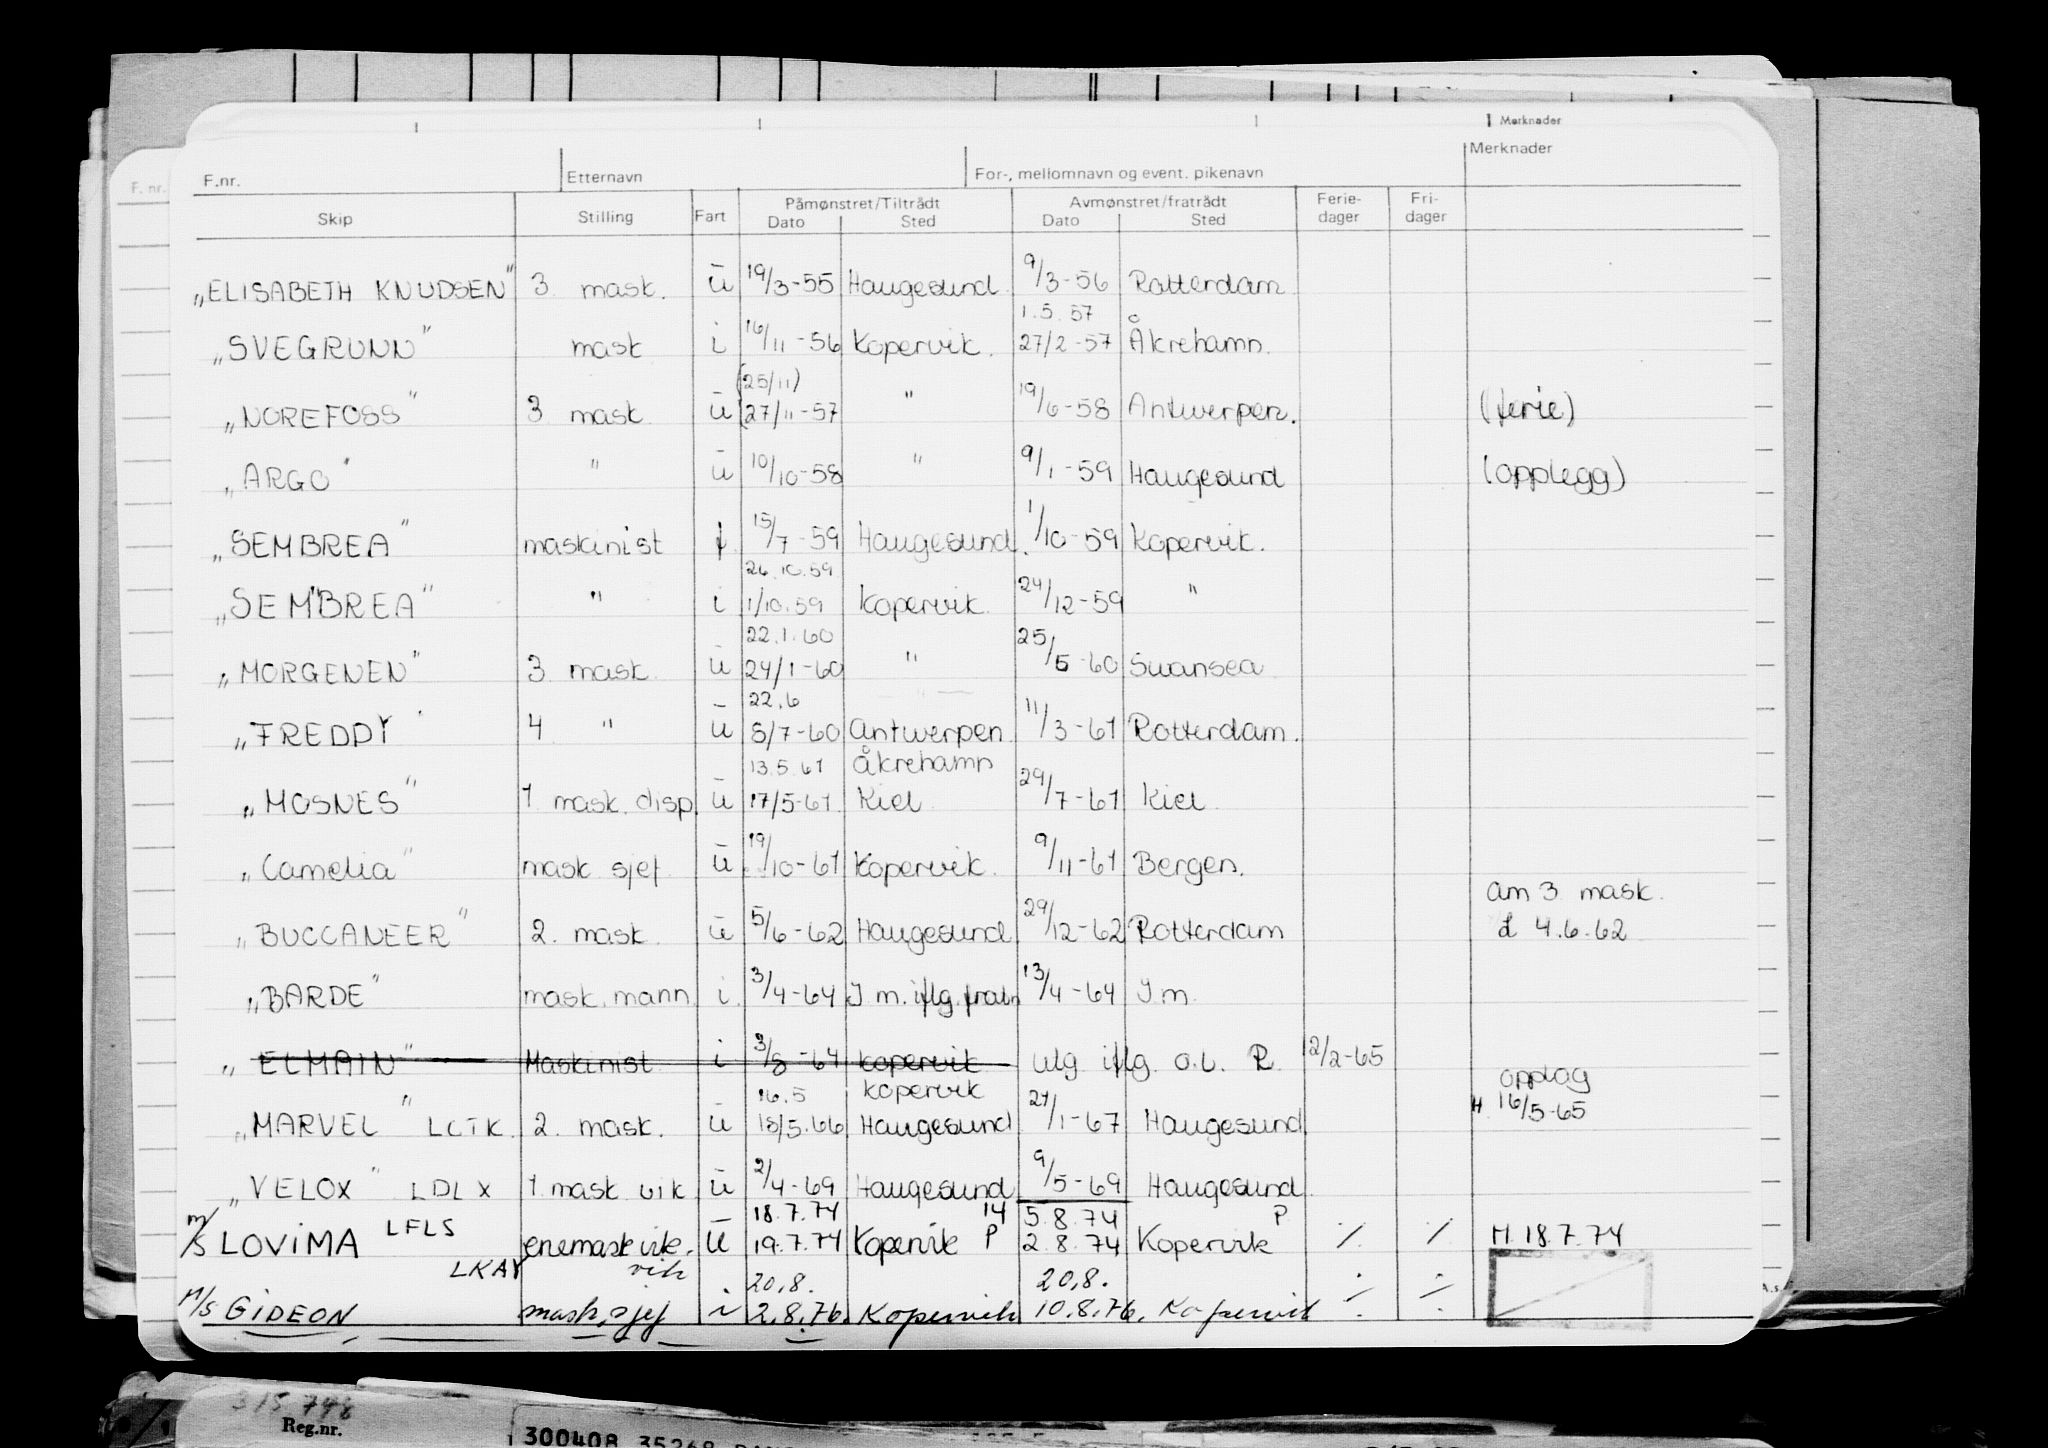 Merknader
F.nr. Etternavn For-, mellomnavn og event. pikenavn Merknader
F. nr.
Skip Stilling Fart Påmønstret/Tiltrådt Dato Sted Avmønstret/fratrådt Dato Sted Ferie-dager Fri-dager
„ELISABETH KNUDSEN" 3 mask. ū 19/3-55 Haugesund 9/3-56 Rotterdam
1.5.57
„SVEGRUNN" mask i 16/11-56 Kopervik. 27/2-57 Åkrehamn.
(25/11)
„NOREFOSS" 3 mask ū 27/11-57 " 19/6-58 Antwerpen. (ferie)
„ARGO" " ū 10/10-58 " 9/1-59 Haugesund (opplegg)
„SEMBREA" maskinist f 15/7-59 Haugesund. 1/10-59 Kopervik.
26.10.59
„SEMBREA" " i 1/10.59 Kopervik. 24/12-59 "
22.1.60
„MORGENEN" 3 mask. ū 24/1-60 " 25/5-60 Swansea
22.6
„FREDDY" 4 " ū 8/7-60 Antwerpen 11/3-61 Rotterdam.
13.5.61 Åkrehamn
„MOSNES" 1 mask. disp ū 17/5-61. Kiel 29/7-61 Kiel
„Camelia" mask sjef ū 19/10-61 Kopervik. 9/11-61 Bergen.
am 3 mask.
„BUCCANEER" 2. mask. ū 5/6-62 Haugesund 29/12-62 Rotterdam 4.6.62
„BARDE" mask. mann i. 3/4-64 J.m. iflg. 13/4-64 J.m.
„ELMAIN" Maskinist i 3/8-64 Kopervik ulg iflg. o.b. R. 2/2-65
opplag
16.5 Kopervik
„MARVEL" LCTK. 2. mask. ū 18/5.66 Haugesund 21/1-67 Haugesund H. 16/5-65
„VELOX" LDLX 1. mask vik ū 2/4-69 Haugesund 9/5-69 Haugesund
18.7.74 14 5.8.74 P
M/S LOVIMA LFLS enemask vik. ū 19.7.74 Kopervik P 2.8.74 Kopervik ⁒ ⁒ H. 18.7.74
LKAY vik 20.8. 20.8.
M/S GIDEON mask.sjef i 2.8.76. Kopervik 10.8.76. Kopervik ⁒ ⁒
A.s
315 748
Reg.nr.
300408 35268